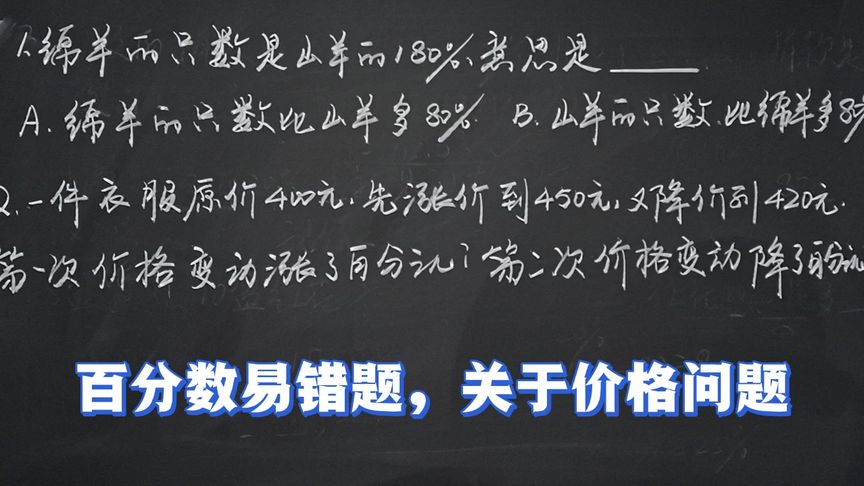 1.绵羊的只数是山羊的180%,意思是____
A.绵羊的只数比山羊多80% B.山羊的只数比绵羊多8
2.一件衣服原价400元,先涨价到450元,又降价到420元.
第一次价格变动涨了百分之几?第二次价格变动降了百分之几
百分数易错题，关于价格问题